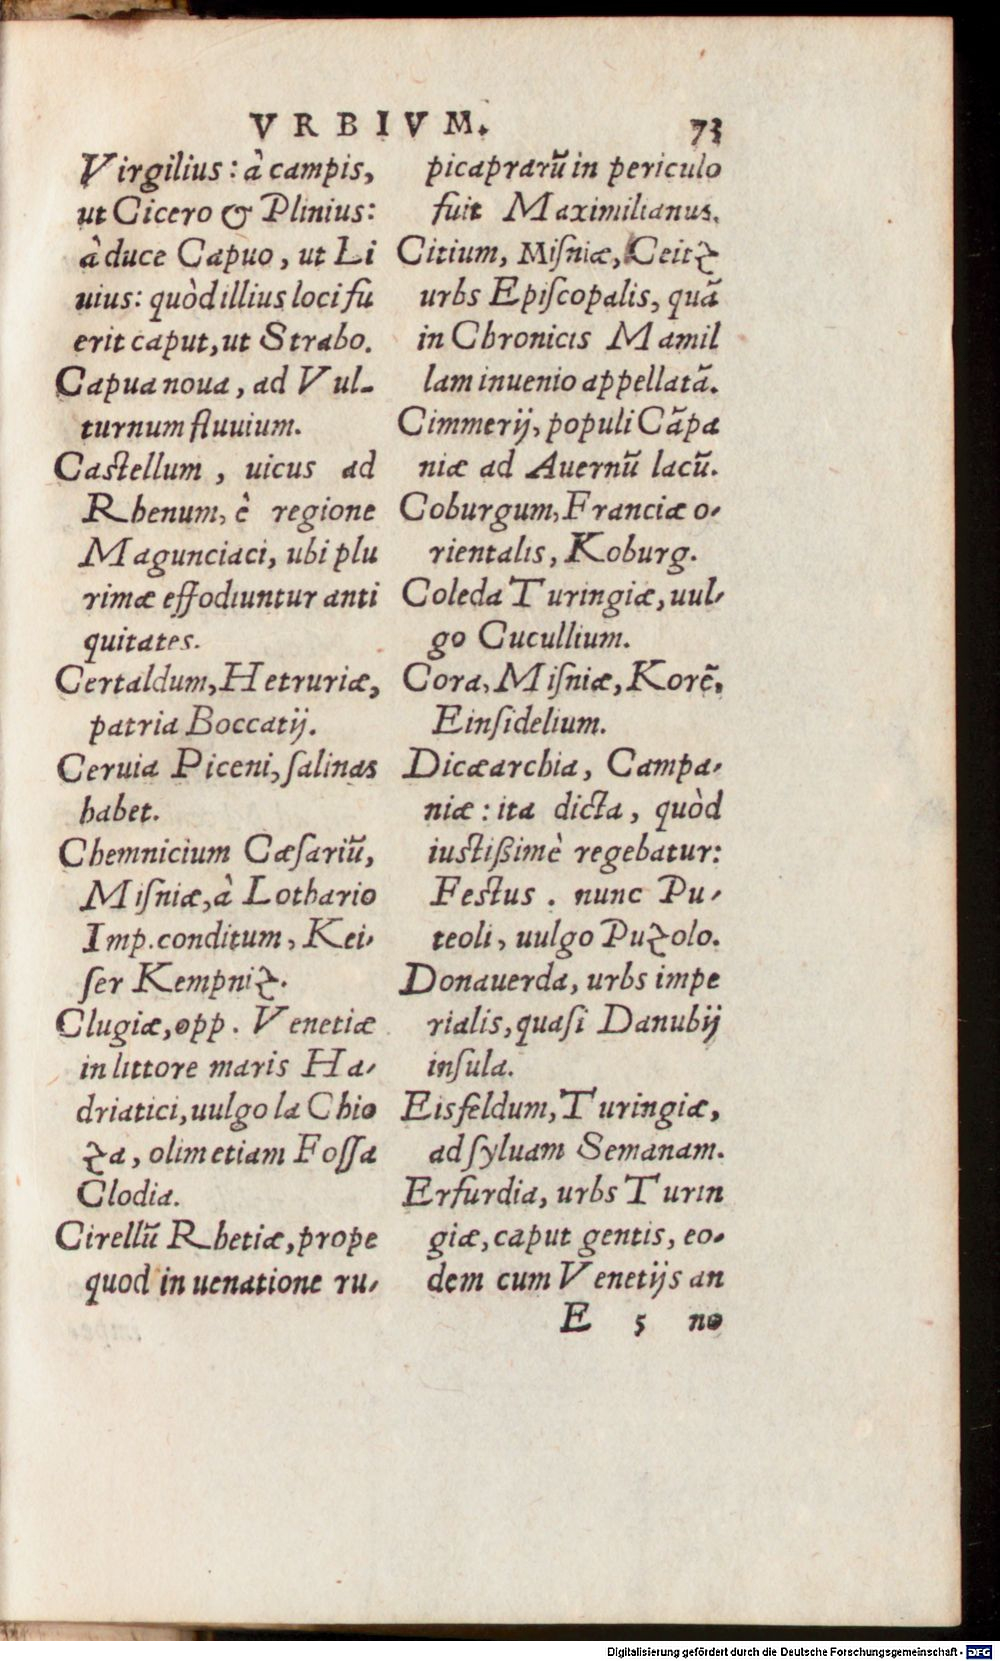 VRBIVM. 73
Virgilius: à campis,
ut Cicero & Plinius:
à duce Capuo, ut Li
uius: quòd illius loci fu
erit caput, ut Strabo.
Capua noua, ad Vul-
turnum fluuium.
Castellum, uicus ad
Rhenum, è regione
Magunciaci, ubi plu
rimæ effodiuntur anti
quitates.
Certaldum, Hetruriæ,
patria Boccatij.
Ceruia Piceni, salinas
habet.
Chemnicium Cæsariũ,
Misniæ, à Lothario
Imp. conditum, Kei-
ser Kempniz.
Clugiæ, opp. Venetiæ
in littore maris Ha-
driatici, uulgo la Chio
za, olim etiam Fossa
Clodia.
Cirellũ Rhetiæ, prope
quod in uenatione ru-
picaprarũ in periculo
fuit Maximilianus.
Citium, Misniæ, Ceitz
urbs Episcopalis, quã
in Chronicis Mamil
lam inuenio appellatã.
Cimmerij, populi Cãpa
niæ ad Auernũ lacũ.
Coburgum, Franciæ o-
rientalis, Koburg.
Coleda Turingiæ, uul-
go Cucullium.
Cora, Misniæ, Korẽ,
Einsidelium.
Dicæarchia, Campa-
niæ: ita dicta, quòd
iustißimè regebatur:
Festus. nunc Pu-
teoli, uulgo Puzolo.
Donauerda, urbs impe
rialis, quasi Danubij
insula.
Eisfeldum, Turingiæ,
ad syluam Semanam.
Erfurdia, urbs Turin
giæ, caput gentis, eo-
dem cum Venetijs an
E 5 no
Digitalisierung gefördert durch die Deutsche Forschungsgemeinschaft - DFG